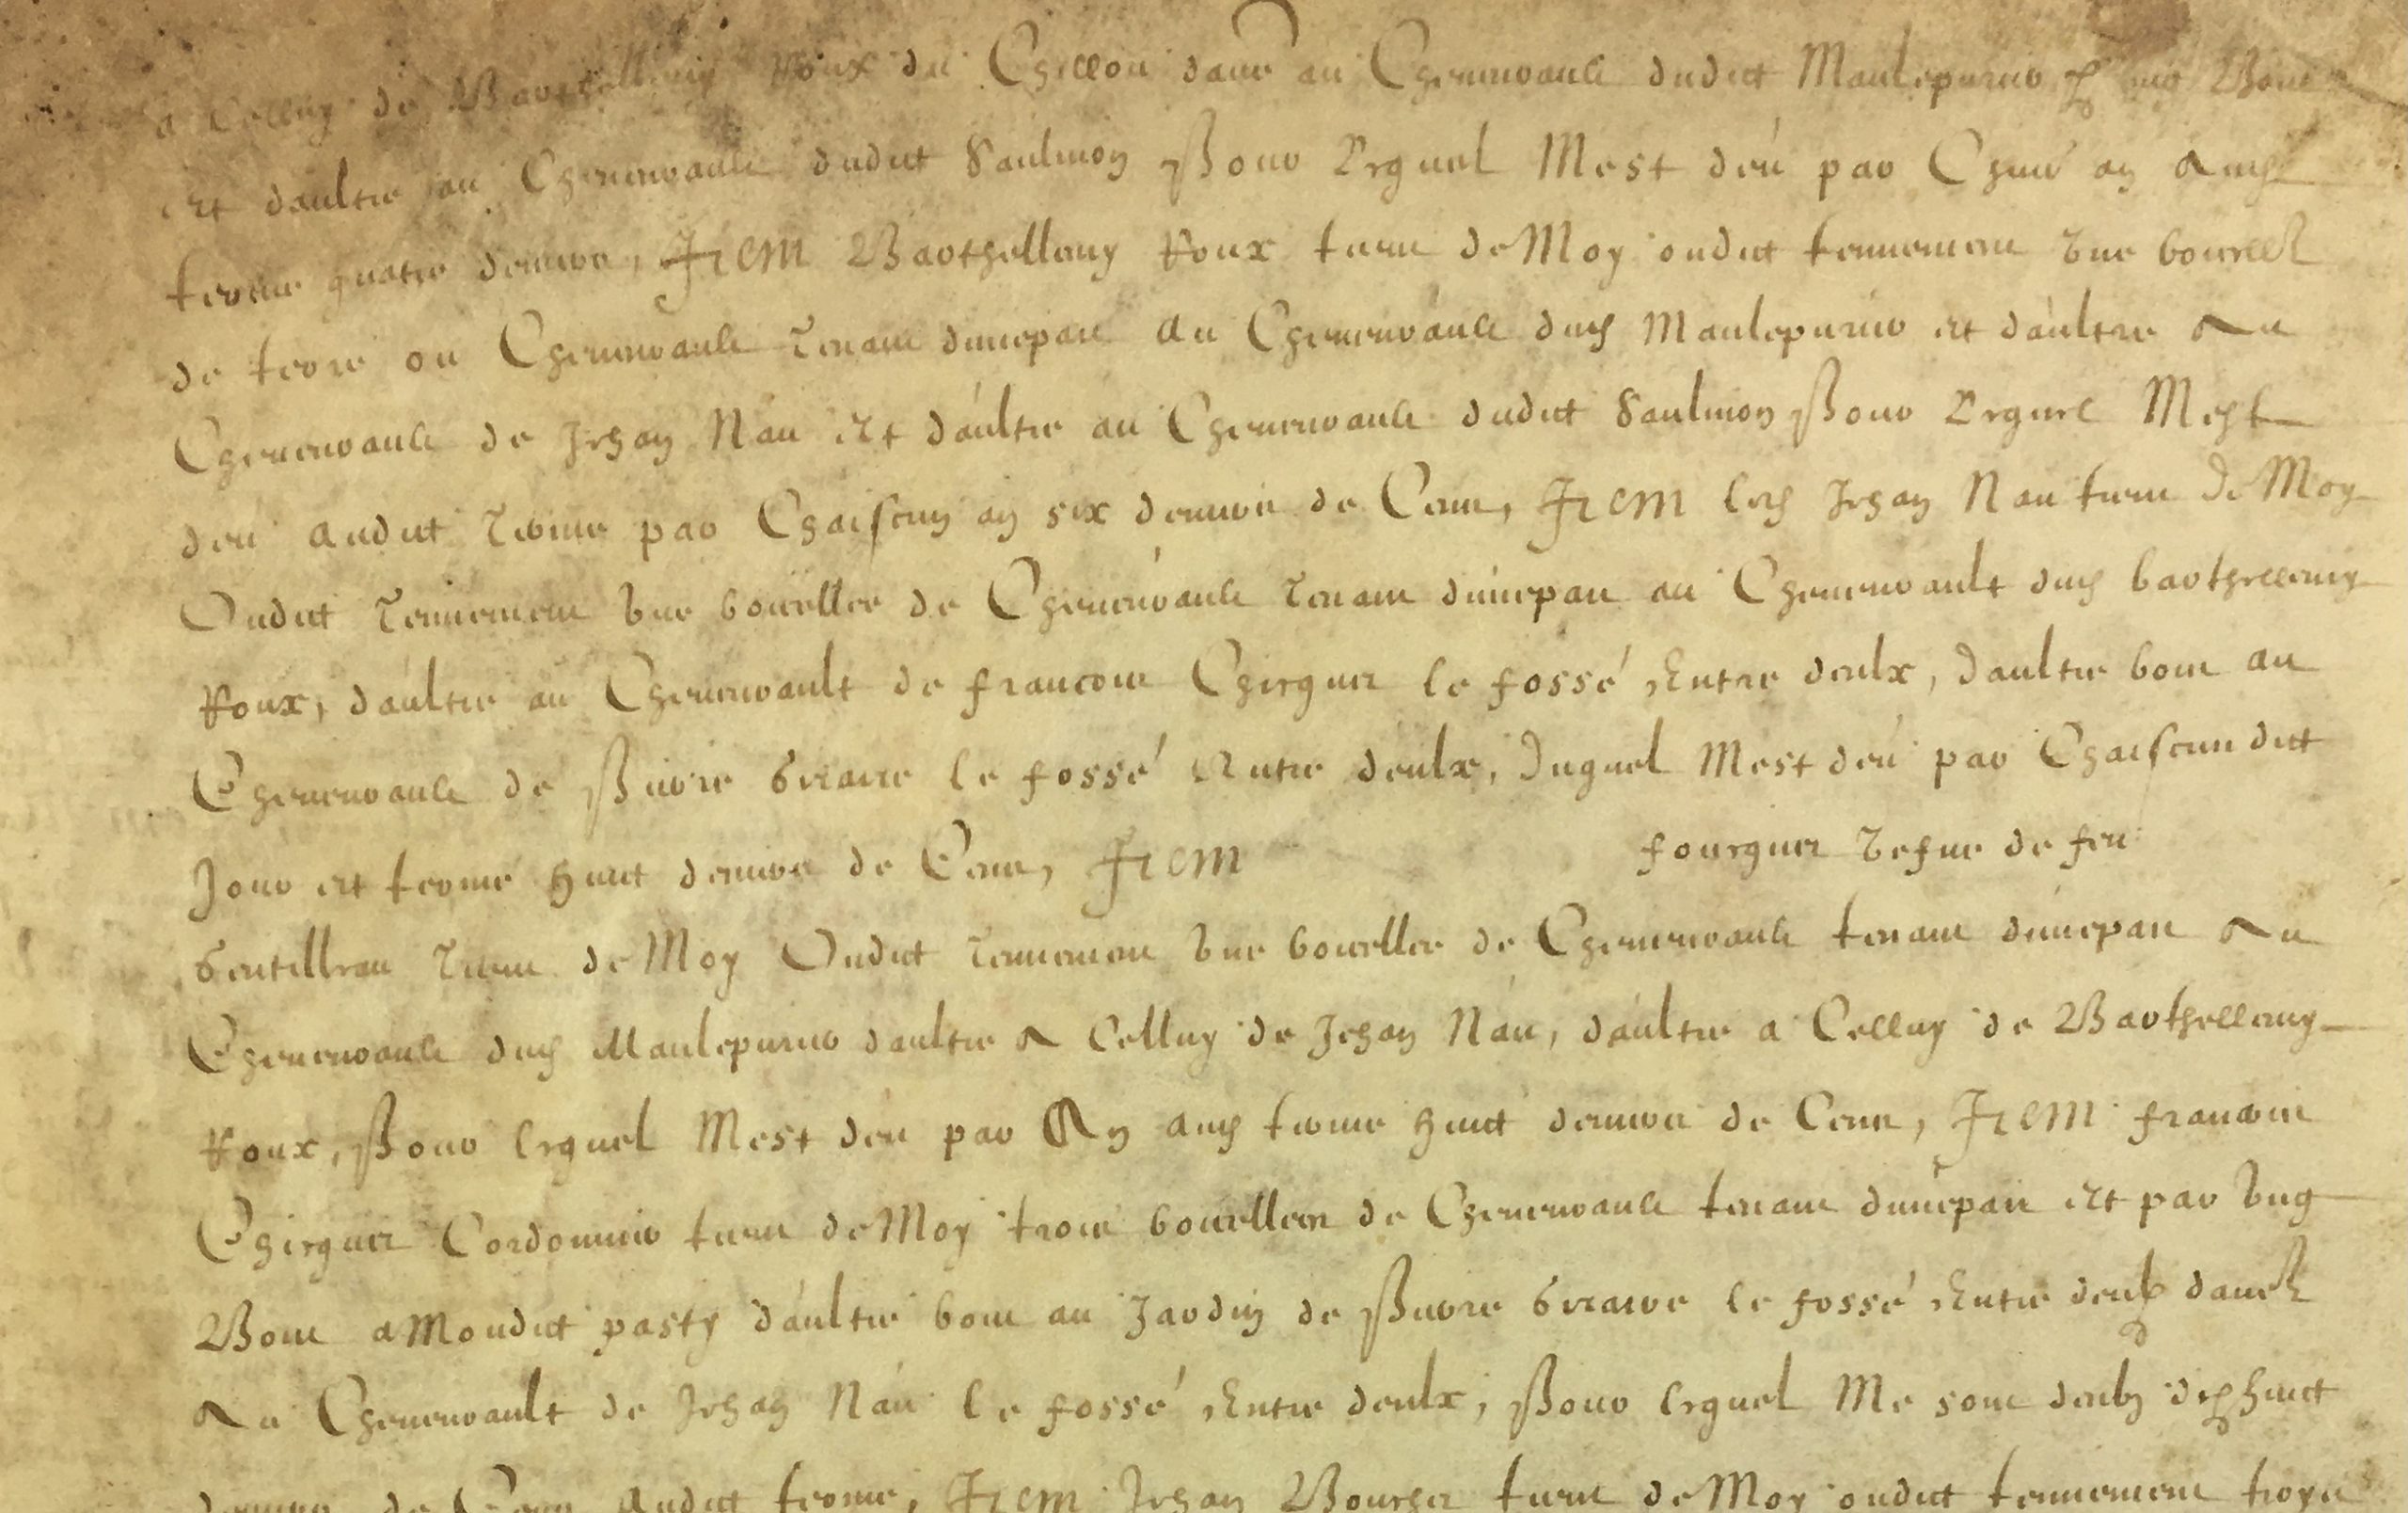 a Celluy de Barthellemy Roux du Chillou dault au Chenevault dudict Maulepuier p ung Bout
et daultre au Chenevault dudict Saulmon Pour lequel Mest deu par Chun an audt
terme quatre deniers, Item Barthellemy Roux tient de Moy oudict tennement une bouell
de terre ou Chenevault Tenant dunepart Au Chenevault dud Maulepuier et daultre Au
Chenevault de Jehan Nau et daultre au Chenevault dudict Saulmon Pour lequel Mest
deu Audict Terme par Chaiscun an six deniers de Cens, Item led Jehan Nau tient de Moy
Oudict Tennement une bouellee de Chenevault Tenant dunepart au Chenevault dud barthellemy
Roux, daultre au Chenevault de francois Chesquet le fossé Entre deulx, daultre bout au
Chenevault de Pierre Giraire le fossé Entre deulx, Duquel Mest deu par Chaiscun dict
Jour et terme huict deniers de Cens, Item fourquet vefue de feu
Gentilleau Tient de Moy Oudict Tennement une bouellee de Chenevault tenant dunepart Au
Chenevault dud Maulepuier daultre A Celluy de Jehan Nau, daultre a Celluy de Barthellemy
Roux, Pour lequel Mest deu par An aud terme huict deniers de Cens, Item francois
Chesquet Cordonnier tient de Moy trois bouellees de Chenevault tenant dunepart et par ung
Bout a Mondict pasty daultre bout au Jardin de Pierre Giraire le fossé Entre deulx dault
Au Chenevault de Jehan Nau le fossé Entre deulx, Pour lequel Me sont deubz dixhuict
deniers de Cens Audict terme, Item Jehan Bourget tient de Moy oudict tennement troys